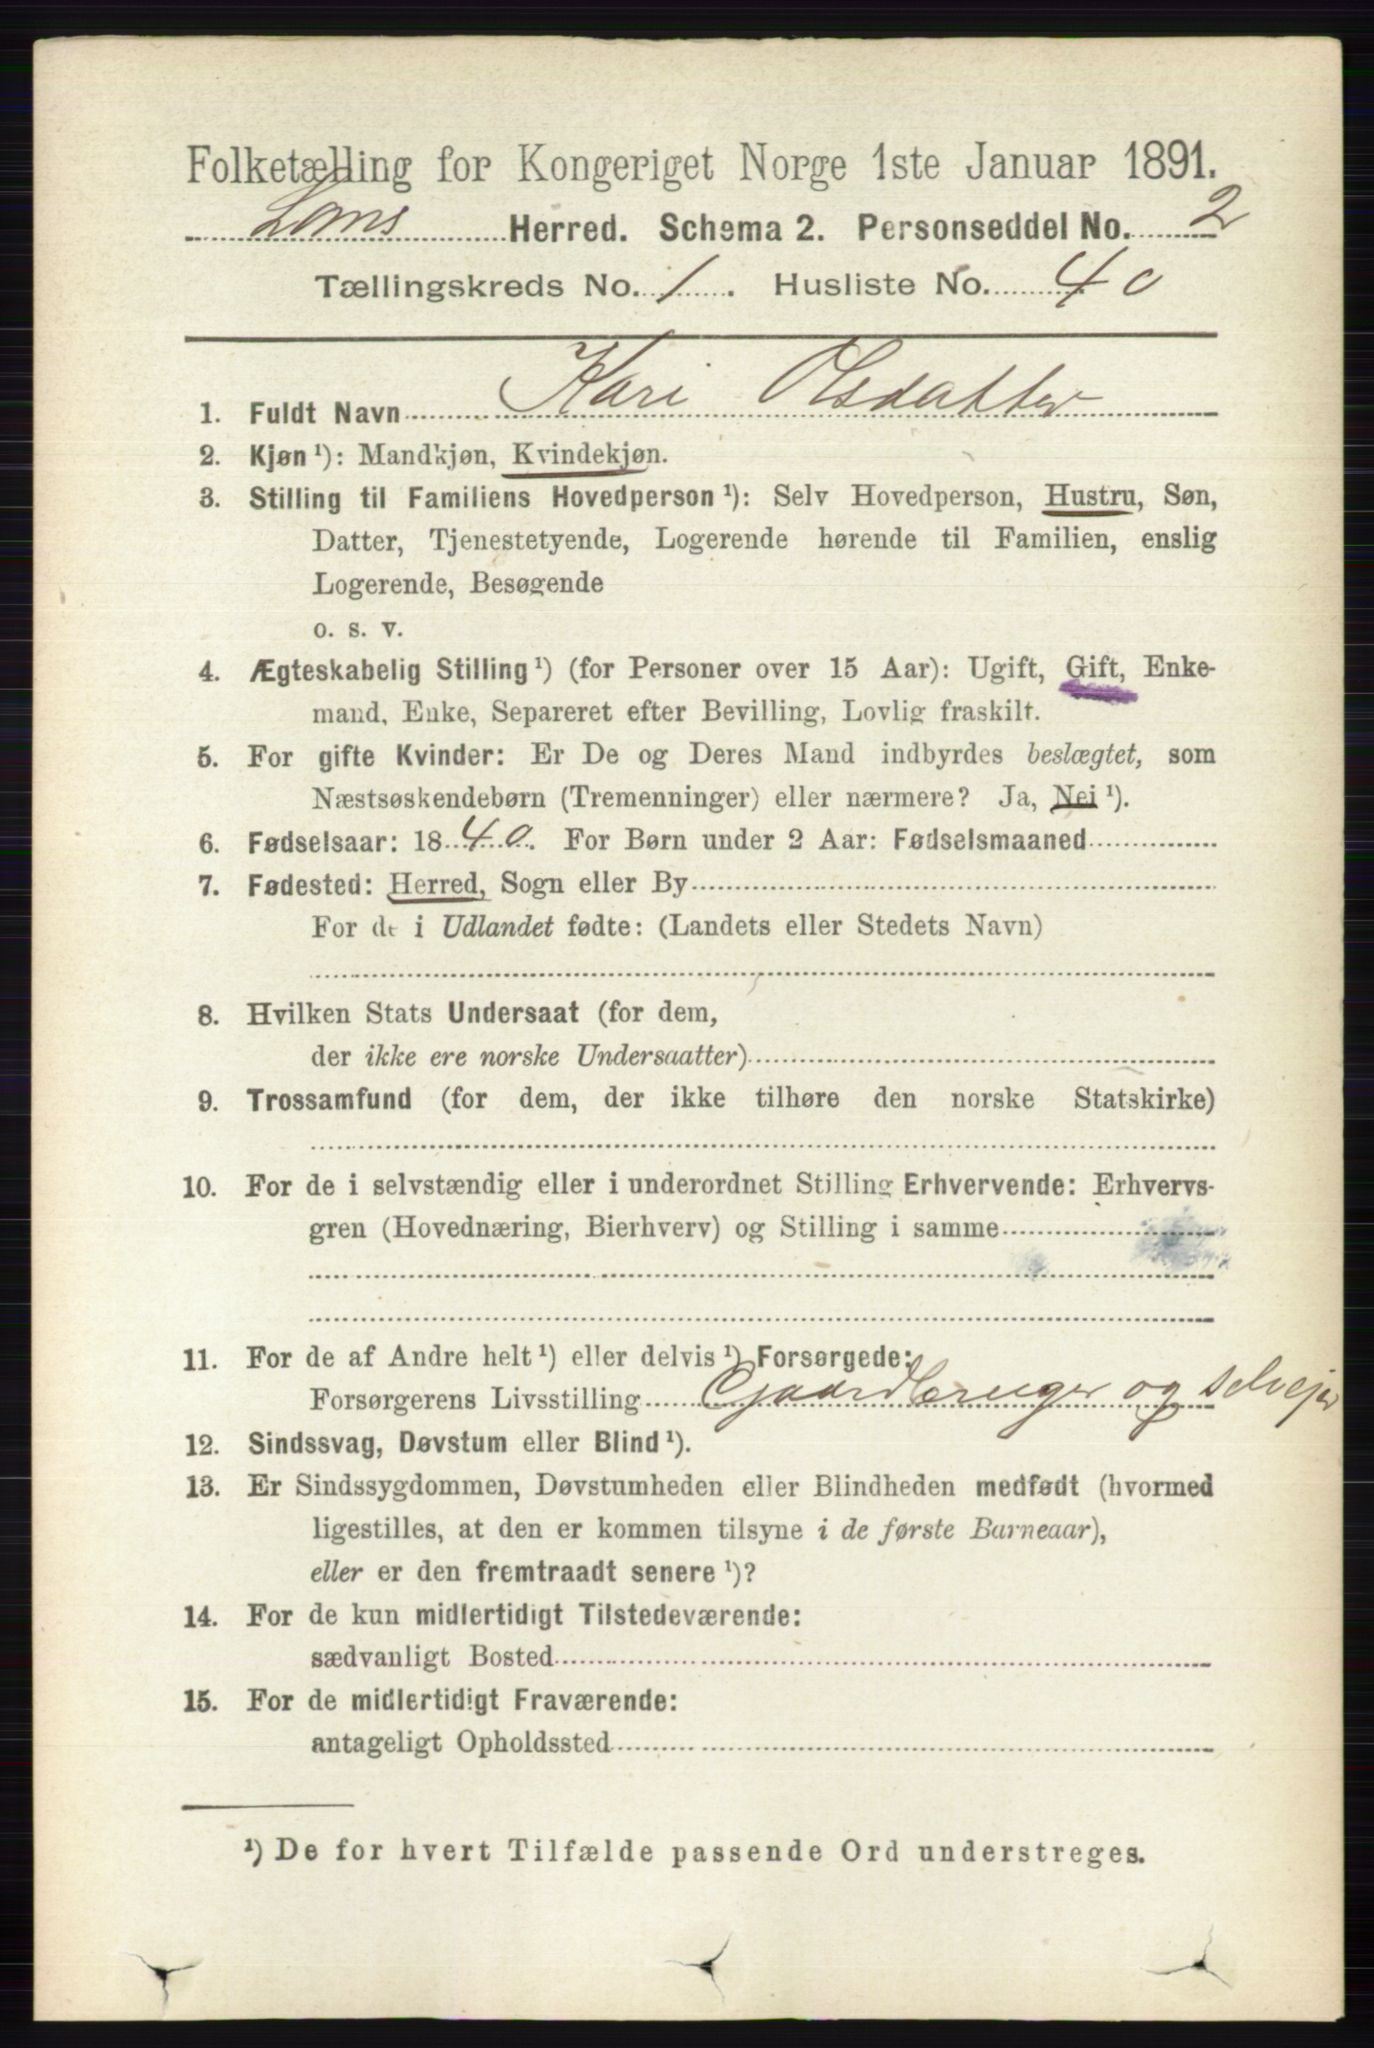 Folketælling for Kongeriget Norge 1ste Januar 1891.
Loms Herred. Schema 2. Personseddel No. 2
Tællingskreds No. 1. Husliste No. 40
1. Fuldt Navn Kari Olsdatter
2. Kjøn ¹): Mandkjøn, Kvindekjøn.
3. Stilling til Familiens Hovedperson ¹): Selv Hovedperson, Hustru, Søn,
Datter, Tjenestetyende, Logerende hørende til Familien, enslig
Logerende, Besøgende
o. s. v.
4. Ægteskabelig Stilling ¹) (for Personer over 15 Aar): Ugift, Gift, Enke-
mand, Enke, Separeret efter Bevilling, Lovlig fraskilt.
5. For gifte Kvinder: Er De og Deres Mand indbyrdes beslægtet, som
Næstsøskendebørn (Tremenninger) eller nærmere? Ja, Nei ¹).
6. Fødselsaar: 1840. For Børn under 2 Aar: Fødselsmaaned
7. Fødested: Herred, Sogn eller By
For de i Udlandet fødte: (Landets eller Stedets Navn)
8. Hvilken Stats Undersaat (for dem,
der ikke ere norske Undersaatter)
9. Trossamfund (for dem, der ikke tilhøre den norske Statskirke)
10. For de i selvstændig eller i underordnet Stilling Erhvervende: Erhvervs-
gren (Hovednæring, Bierhverv) og Stilling i samme
11. For de af Andre helt ¹) eller delvis ¹) Forsørgede:
Forsørgerens Livsstilling Gaardbruger og selvejer
12. Sindssvag, Døvstum eller Blind ¹).
13. Er Sindssygdommen, Døvstumheden eller Blindheden medfødt (hvormed
ligestilles, at den er kommen tilsyne i de første Barneaar),
eller er den fremtraadt senere ¹)?
14. For de kun midlertidigt Tilstedeværende:
sædvanligt Bosted
15. For de midlertidigt Fraværende:
antageligt Opholdssted
¹) De for hvert Tilfælde passende Ord understreges.